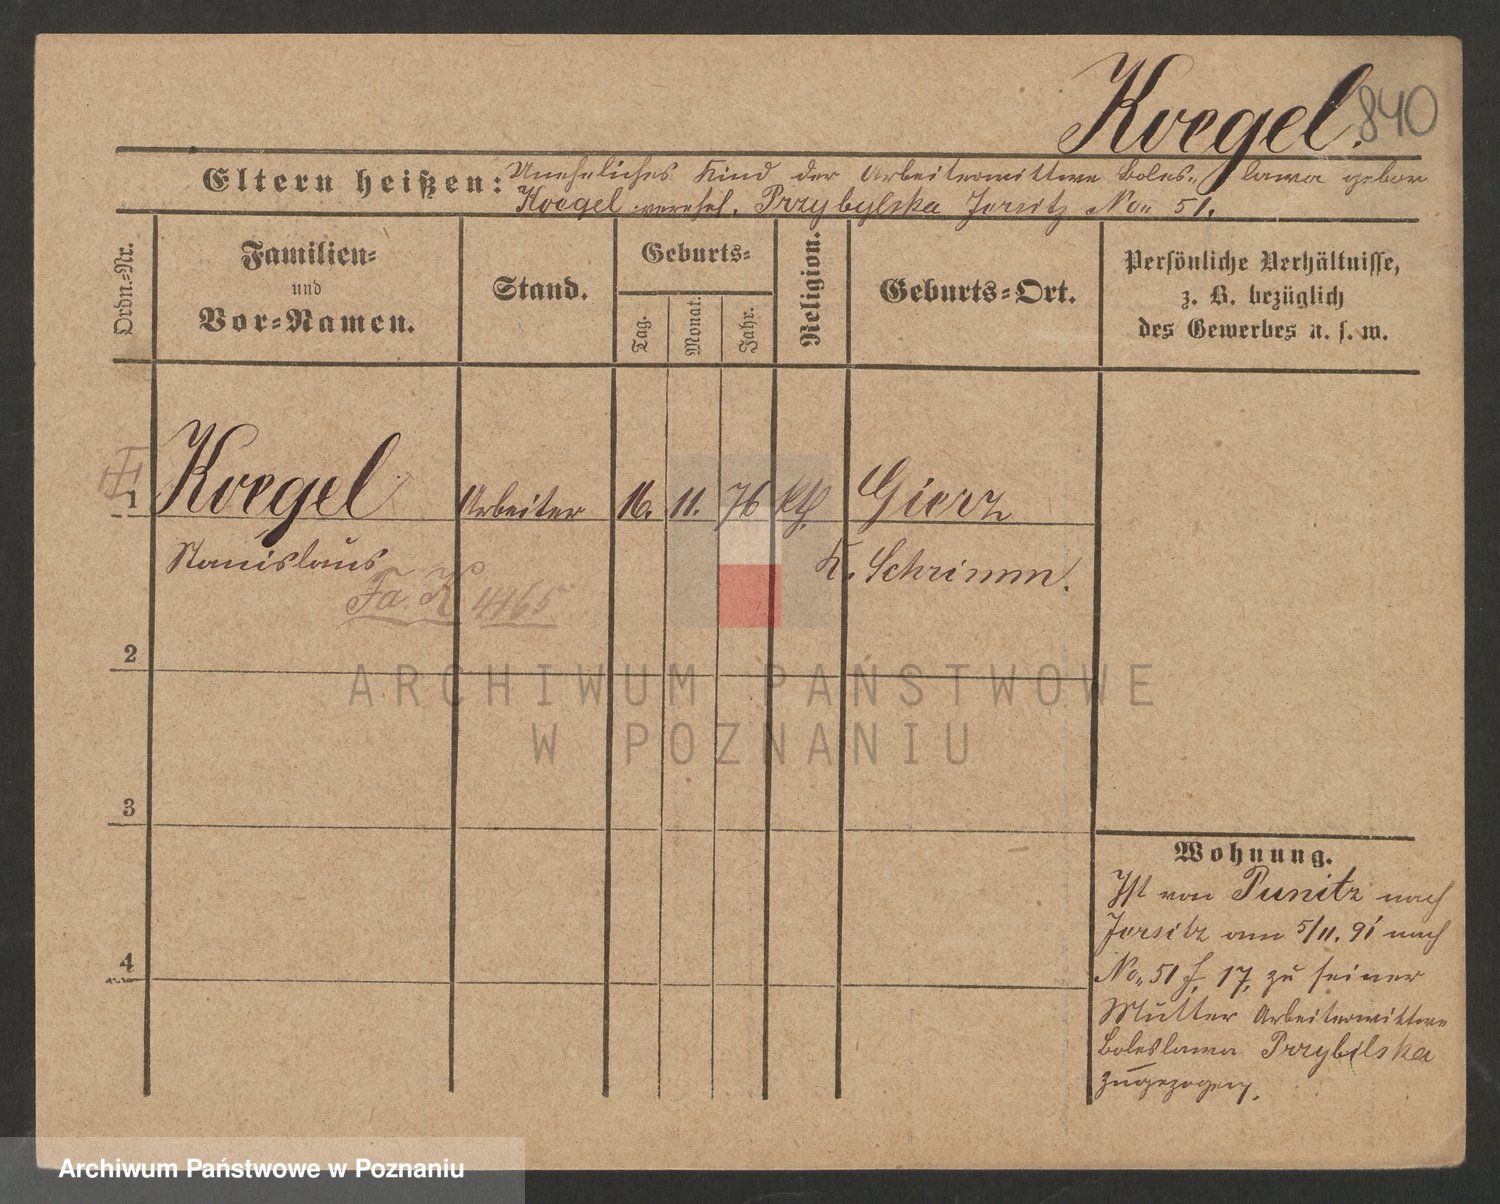 Koegel.
840
Eltern heißen: Uneheliches Kind der Arbeiterwittwe Boles-lawa gebor
Koegel verehel. Przybylska Jersitz No. 51.
Ordn.-Nr.
Familien-
und
Vor-Namen.
Stand.
Geburts-
Tag.
Monat.
Jahr.
Religion.
Geburts-Ort.
Persönliche Verhältnisse,
z. B. bezüglich
des Gewerbes u. s. w.
1 Koegel Arbeiter 16. 11. 76 kth. Gierz
Stanislaus K. Schrimm.
Fa. K 4165
2
3
4
Wohnung.
Ist von Punitz nach
Jersitz am 5/11. 91 nach
No. 51 f. 17. zu seiner
Mutter Arbeiterwittwe
Boleslawa Przybilska
zugezogen.
ARCHIWUM PAŃSTWOWE
W POZNANIU
Archiwum Państwowe w Poznaniu